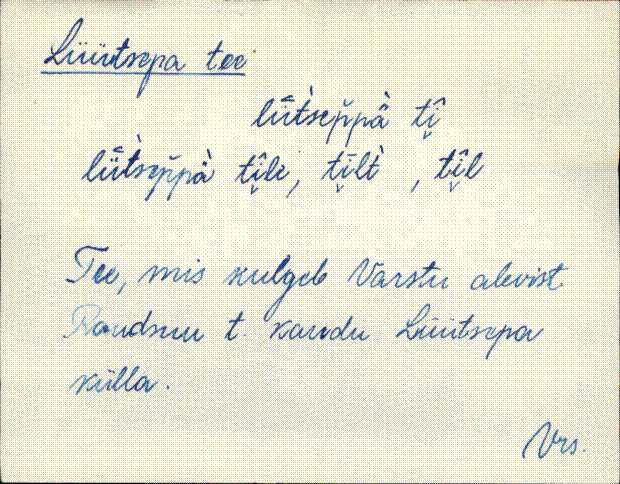 Lüütsepa tee
lǖ̀tsep̆pȧ̀ tī̮
lǖ̀tsep̆pȧ̀ tī̮le, tī̮lt̀, tī̮l
Tee, mis kulgeb Varstu alevist
Raudsuu t. kaudu Lüütsepa
külla.
Vrs.